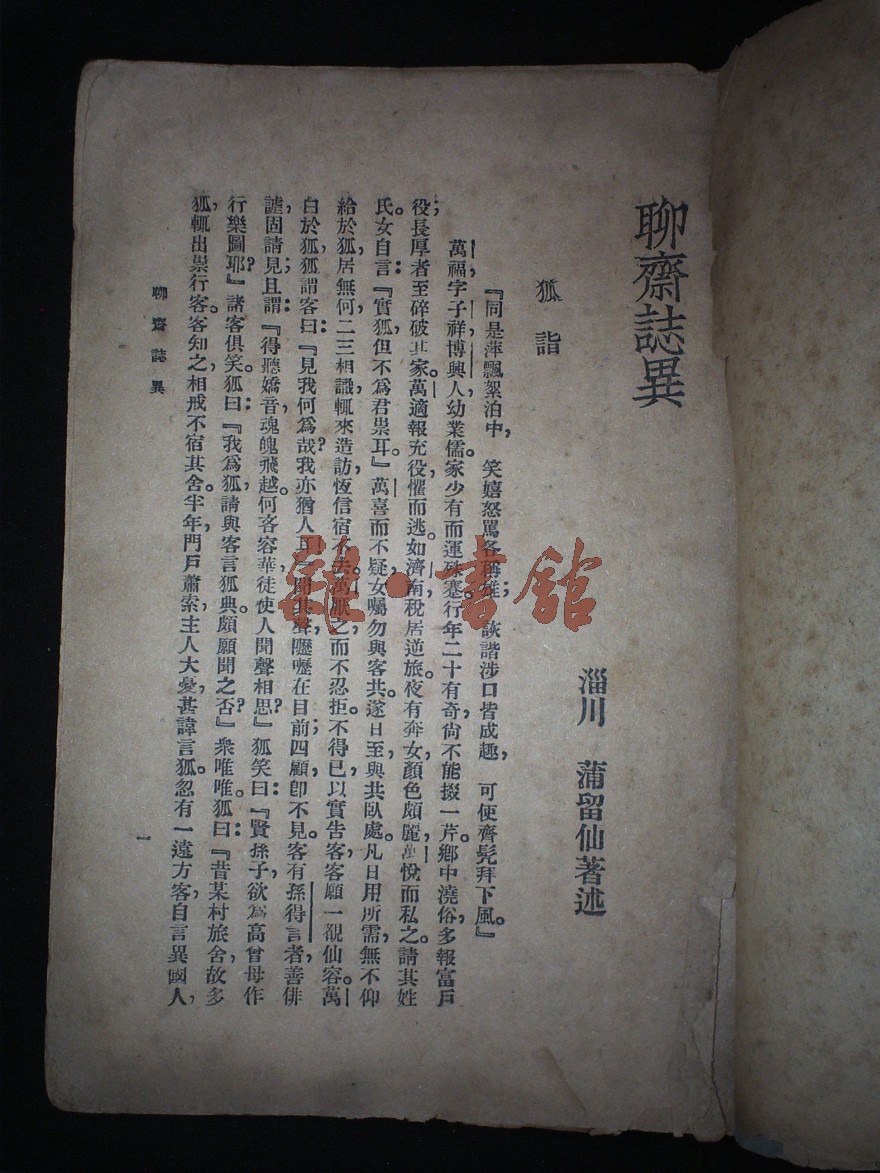 聊齋誌異
淄川　蒲留仙著述
狐詣
『同是萍飄絮泊中，笑嬉怒罵各稱雄；詼諧涉口皆成趣，可使齊髡拜下風。』
萬福，字子祥，博興人，幼業儒，家少有而運殊蹇，行年二十有奇，尙不能掇一芹。鄕中澆俗，多報富戶
役；長厚者至碎破其家。萬適報充役，懼而逃。如濟南，稅居逆旅。夜有奔女，顏色頗麗，萬悅而私之。請其姓
氏。女自言：『實狐，但不爲君祟耳。』萬喜而不疑，女囑勿與客共。遂日至，與共臥處。凡日用所需，無不仰
給於狐，居無何，二三相識，輒來造訪，恆信宿不去。萬厭之而不忍拒。不得已，以實吿客。客願一覩仙容。萬
白於狐，狐謂客曰：『見我何爲哉？我亦猶人耳』聞其聲，嚦嚦在目前；四顧，卽不見。客有孫得言者，善俳
謔，固請見；且謂：『得聽嬌音，魂魄飛越。何吝容華，徒使人聞聲相思？』狐笑曰：『賢孫子，欲爲高曾母作
行樂圖耶？』諸客俱笑。狐曰：『我爲狐，請與客言狐典。頗願聞之否？』衆唯唯。狐曰：『昔某村旅舍，故多
狐，輒出祟行客。客知之，相戒不宿其舍。半年，門戶蕭索，主人大憂，甚諱言狐。忽有一遠方客，自言異國人，
聊齋誌異
一
雜·書館